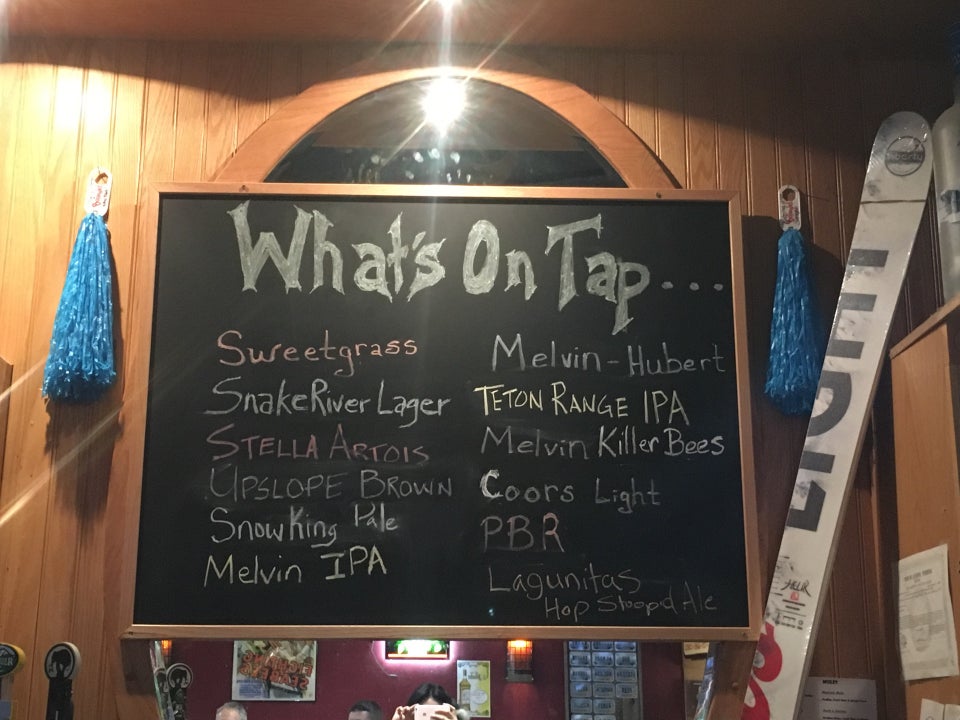 What's On Tap...
Sweetgrass
Snake River Lager
STELLA ARTOIS
UPSLOPE BROWN
Snow King Pale
Melvin IPA
Melvin - Hubert
TETON RANGE IPA
Melvin Killer Bees
Coors Light
PBR
Lagunitas
Hop Stoopd Ale